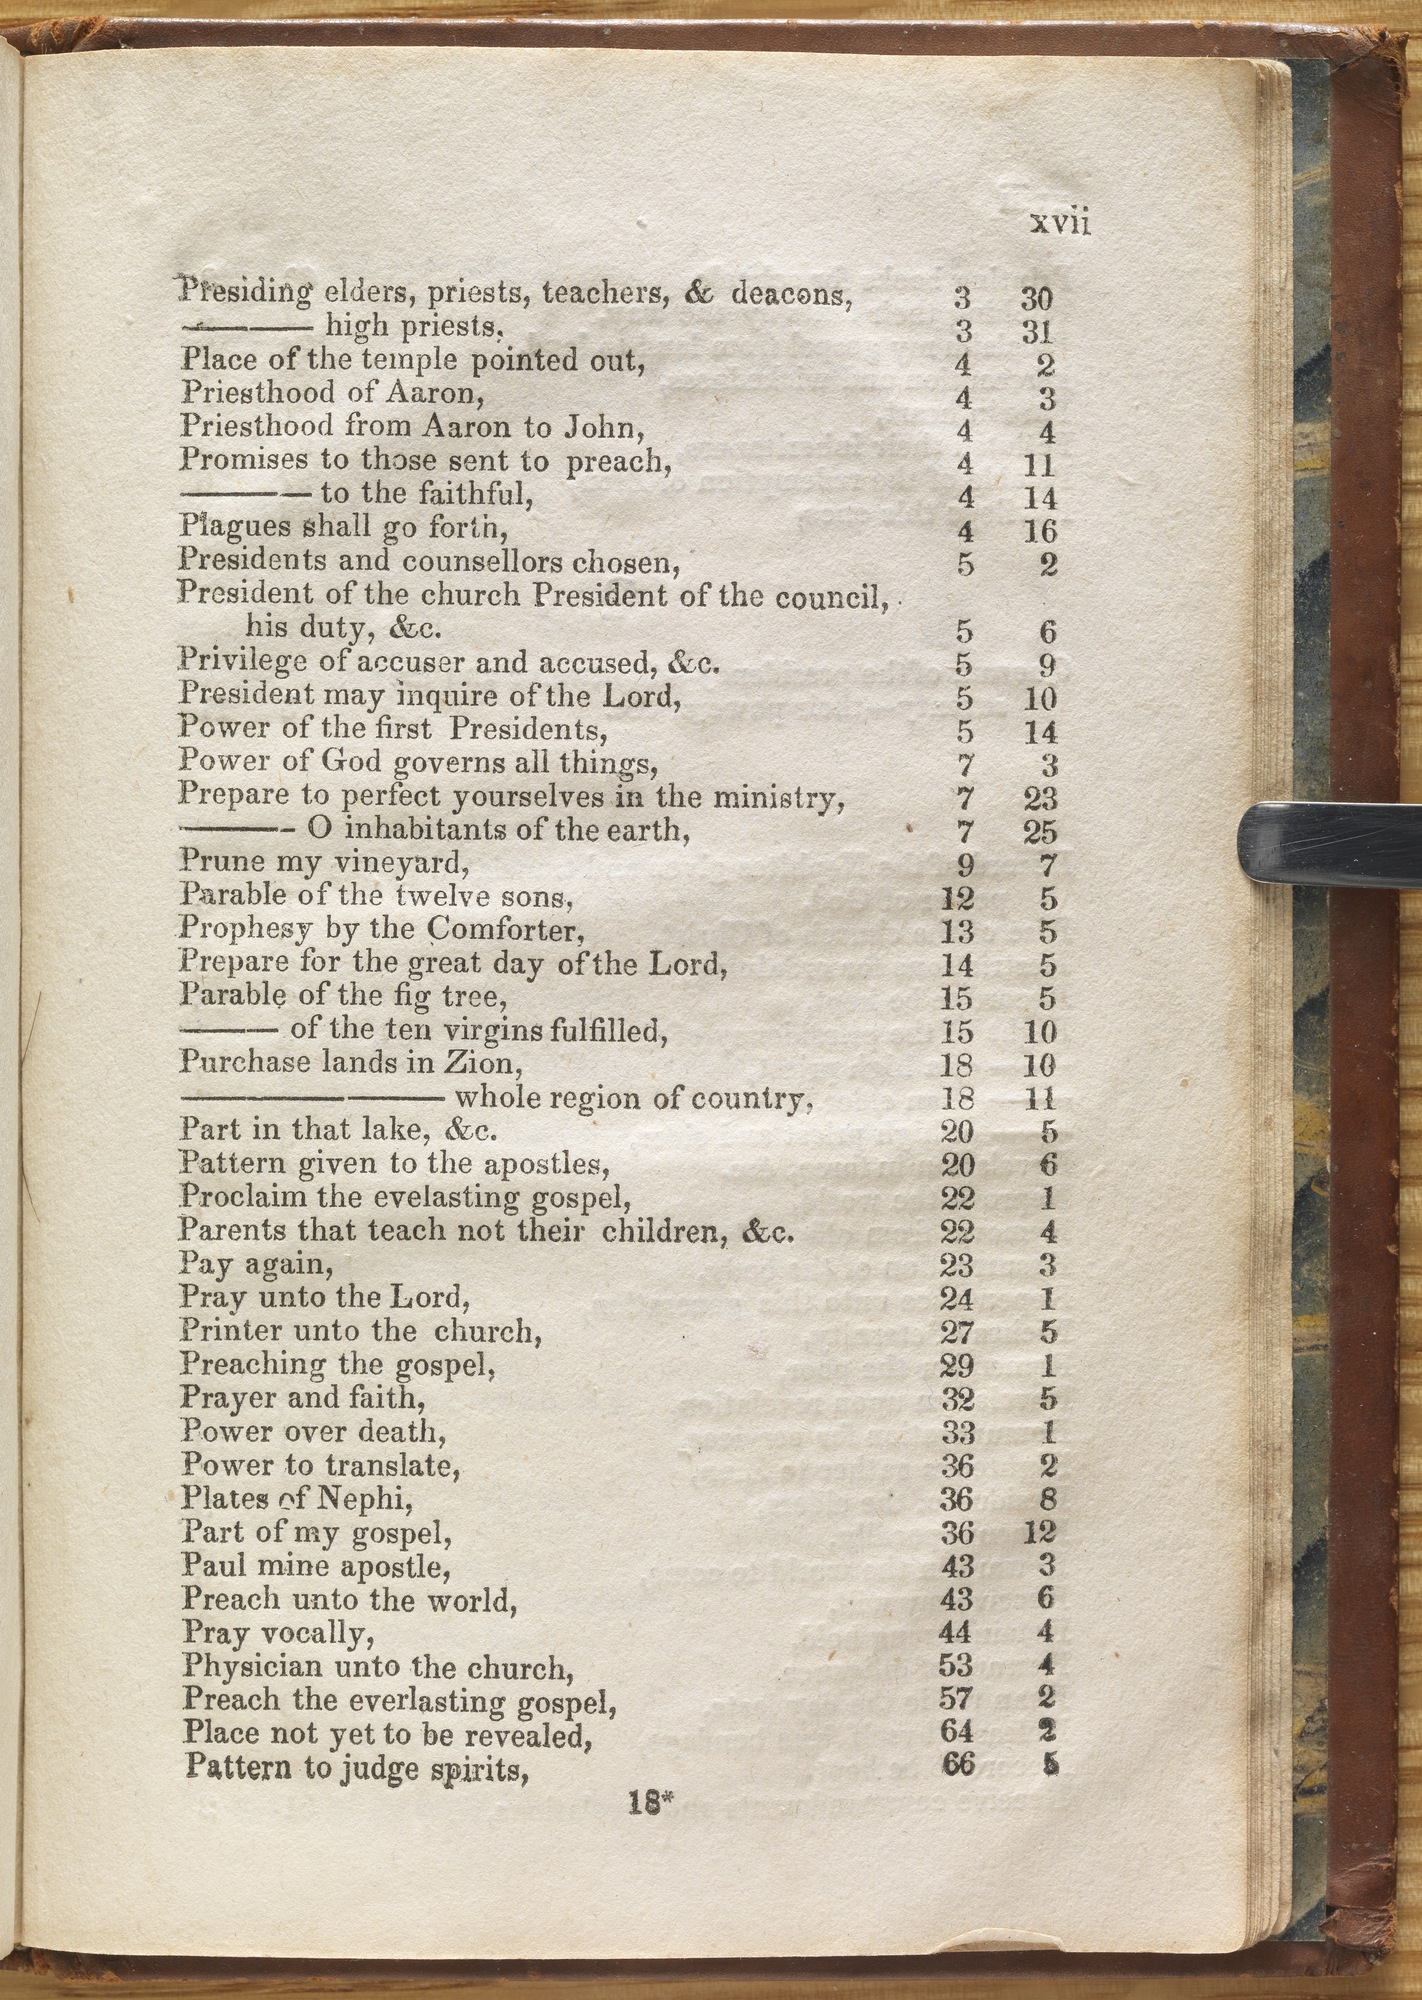 xvii
Presiding elders, priests, teachers, & deacons, 3 30
———— high priests, 3 31
Place of the temple pointed out, 4 2
Priesthood of Aaron, 4 3
Priesthood from Aaron to John, 4 4
Promises to those sent to preach, 4 11
———— to the faithful, 4 14
Plagues shall go forth, 4 16
Presidents and counsellors chosen, 5 2
President of the church President of the council,
his duty, &c. 5 6
Privilege of accuser and accused, &c. 5 9
President may inquire of the Lord, 5 10
Power of the first Presidents, 5 14
Power of God governs all things, 7 3
Prepare to perfect yourselves in the ministry, 7 23
———— O inhabitants of the earth, 7 25
Prune my vineyard, 9 7
Parable of the twelve sons, 12 5
Prophesy by the Comforter, 13 5
Prepare for the great day of the Lord, 14 5
Parable of the fig tree, 15 5
——— of the ten virgins fulfilled, 15 10
Purchase lands in Zion, 18 10
———————— whole region of country, 18 11
Part in that lake, &c. 20 5
Pattern given to the apostles, 20 6
Proclaim the evelasting gospel, 22 1
Parents that teach not their children, &c. 22 4
Pay again, 23 3
Pray unto the Lord, 24 1
Printer unto the church, 27 5
Preaching the gospel, 29 1
Prayer and faith, 32 5
Power over death, 33 1
Power to translate, 36 2
Plates of Nephi, 36 8
Part of my gospel, 36 12
Paul mine apostle, 43 3
Preach unto the world, 43 6
Pray vocally, 44 4
Physician unto the church, 53 4
Preach the everlasting gospel, 57 2
Place not yet to be revealed, 64 2
Pattern to judge spirits, 66 5
18*